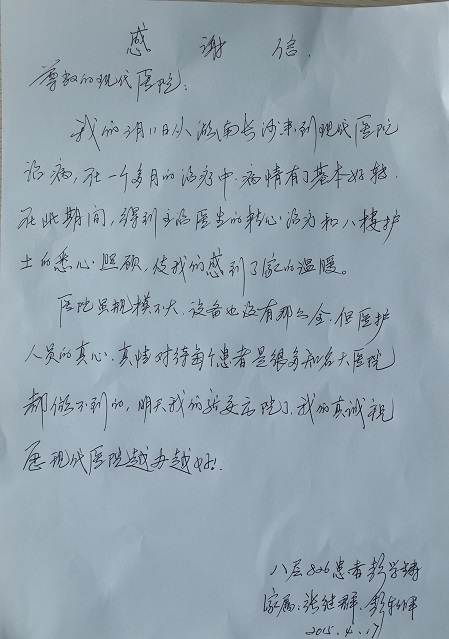 感谢信
尊敬的现代医院:
我们3月11日从湖南长沙来到现代医院
治病,在一个多月的治疗中,病情有了基本好转.
在此期间,得到主治医生的精心治疗和八楼护
士的悉心照顾,使我们感到了家的温暖。
医院虽规模不大,设备也没有那么全,但医护
人员的真心、真情对待每个患者是很多知名大医院
都做不到的,明天我们就要出院了,我们真诚祝
愿现代医院越办越好!
八层826患者彭学
家属:张继群、彭
2015.4.17